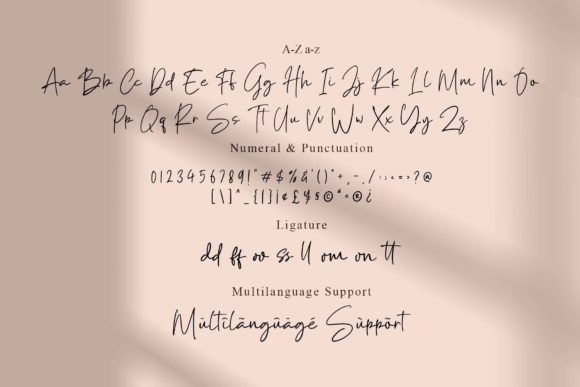 A-Z a-z
Aa Bb Cc Dd Ee Ff Gg Hh Ii Jj Kk Ll Mm Nn Oo
Pp Qq Rr Ss Tt Uu Vv Ww Xx Yy Zz
Numeral & Punctuation
0123456789!"#$%&'()*+,-./:;<=>?@
[\]^_{|}¡¢£¥§©ª«®¿
Ligature
dd ff ov ss ll om on tt
Multilanguage Support
Mùltîlãngûàgé Sùppõrt